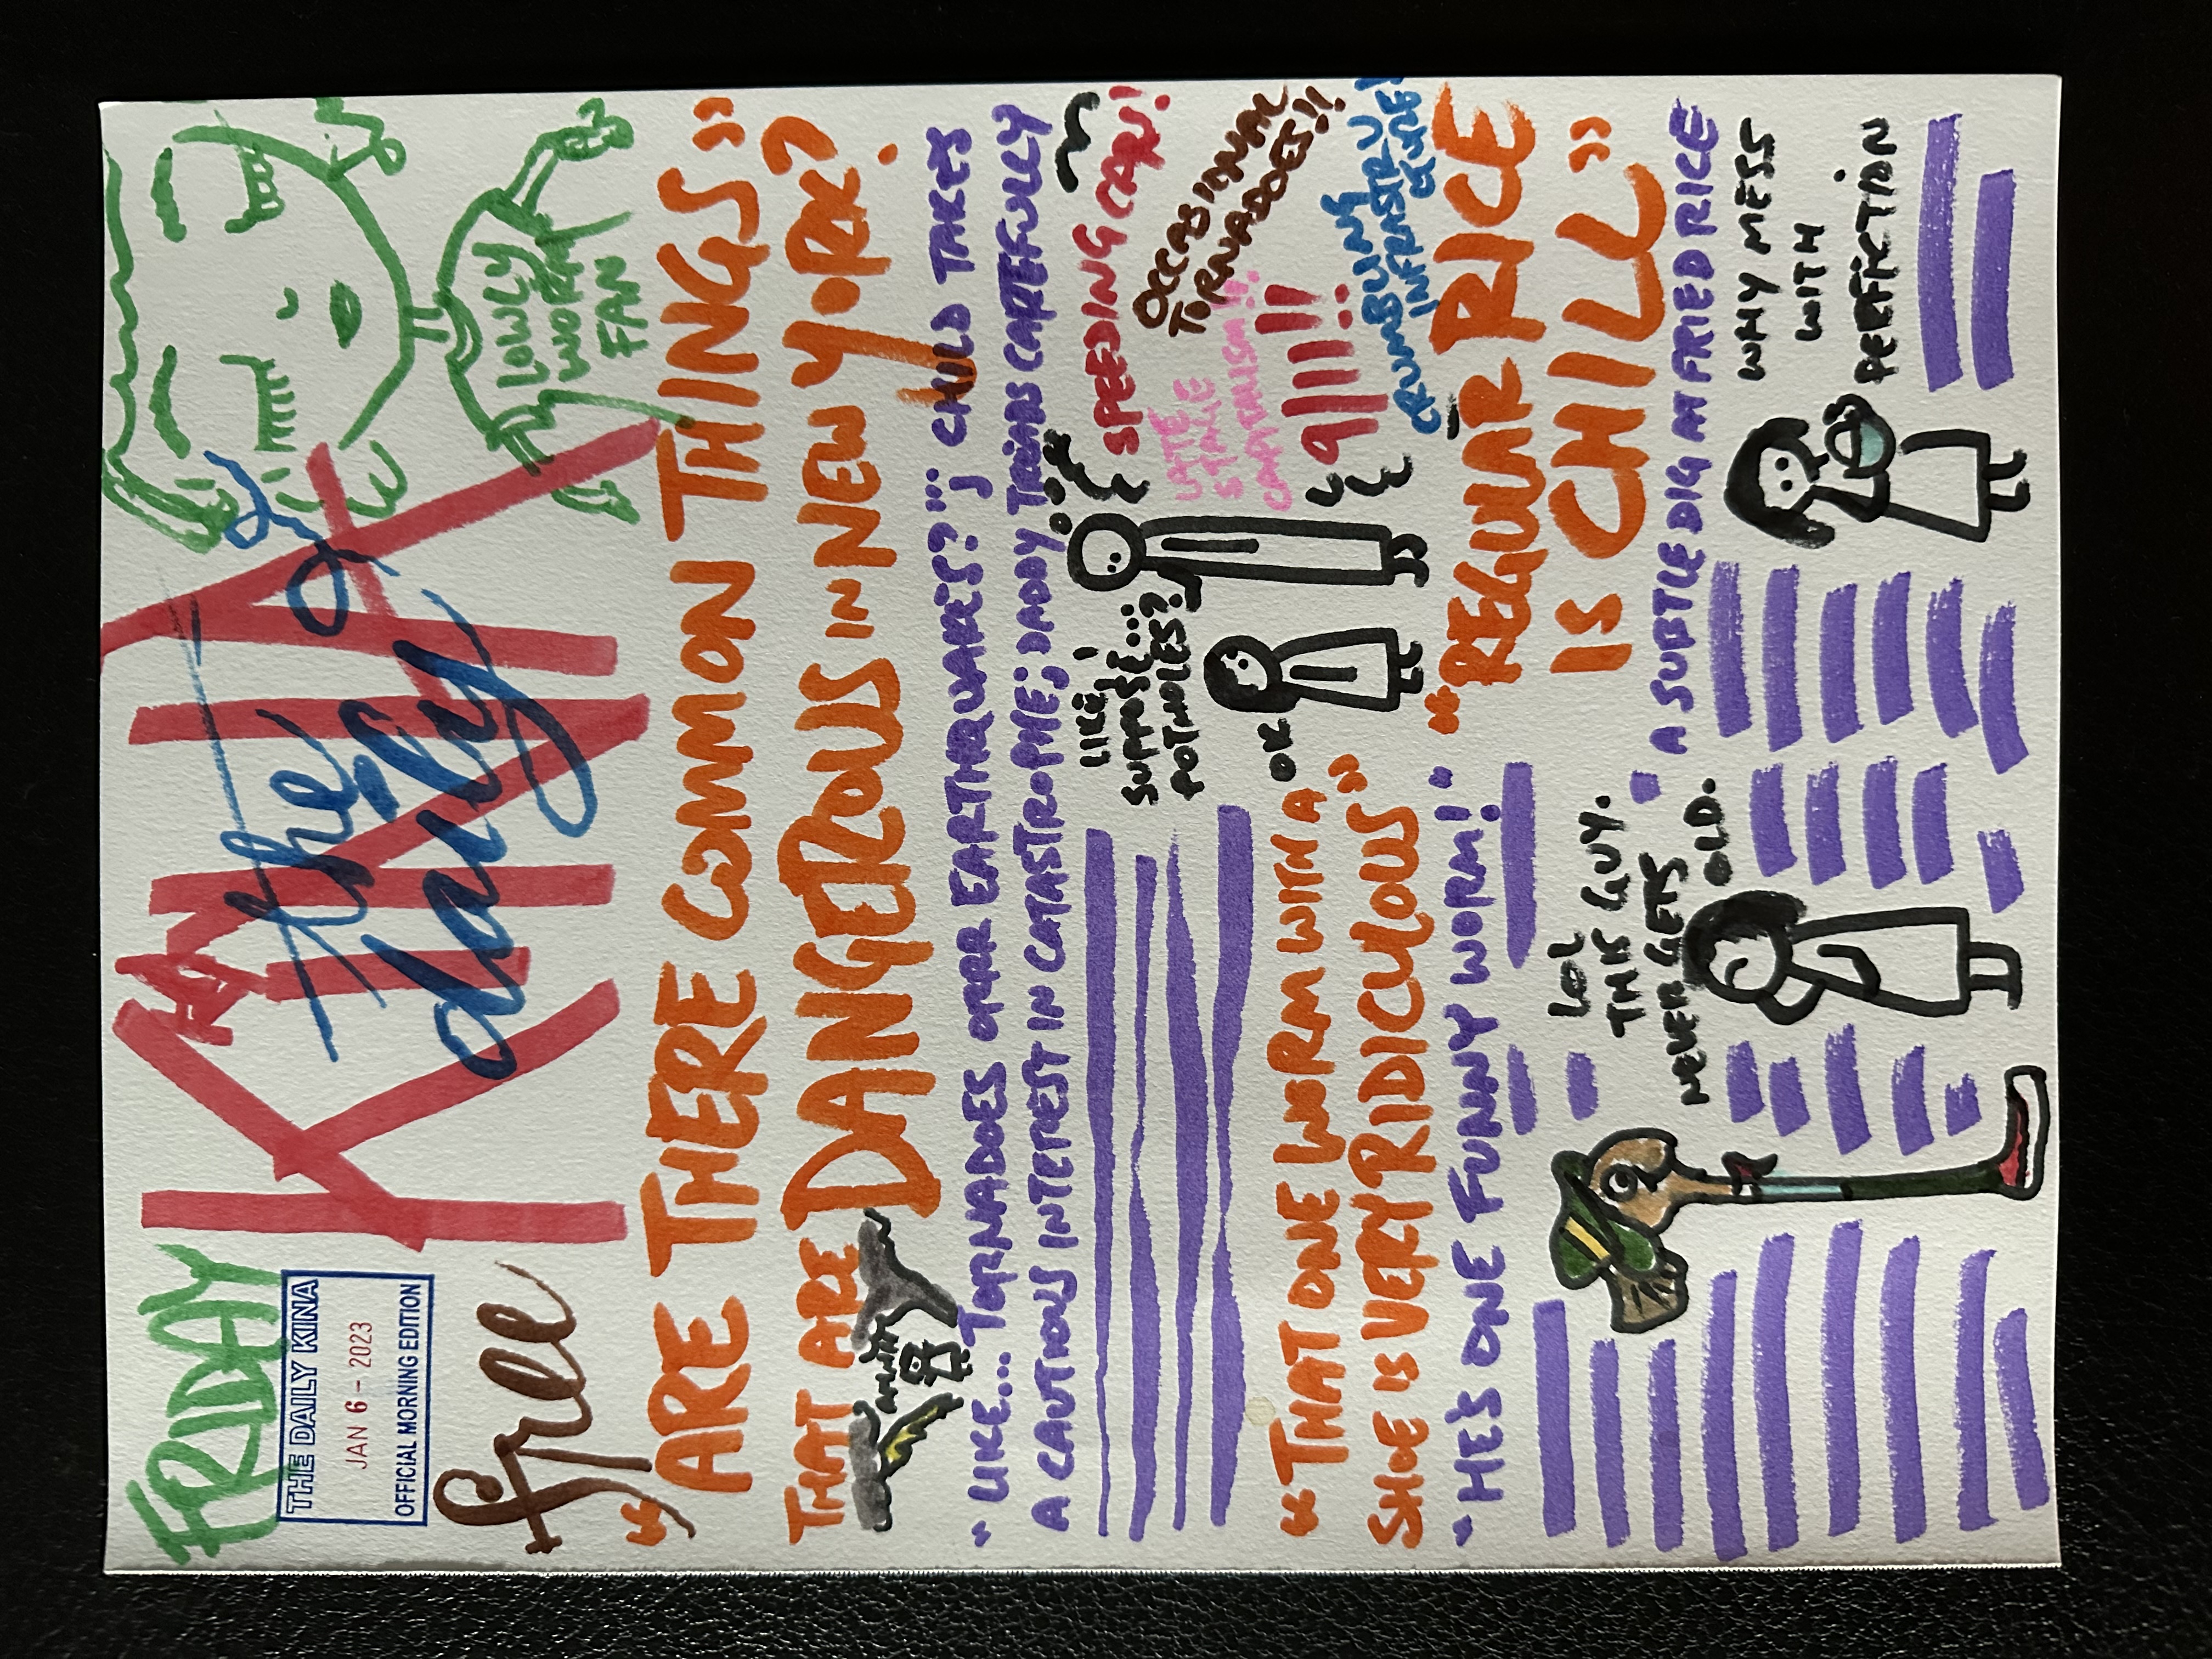 FRIDAY
THE DAILY KINA
JAN 6 - 2023
OFFICIAL MORNING EDITION
free
the
daily
KINA
LOWLY
WORM
FAN
“ARE THERE COMMON THINGS”
THAT ARE DANGEROUS IN NEW YORK?
“LIKE... TORNADOES ORR EARTHQUAKES?”; CHILD TAKES
A CAUTIOUS INTEREST IN CATASTROPHE; DADDY TREADS CAREFULLY
LIKE, I
SUPPOSE...
POTHOLES?
OK
SPEEDING CARS!
OCCASIONAL
TORNADOES!!
LATE
STAGE
CAPITALISM!
9/11!!
CRUMBLING
INFRASTRUCTURE!
“THAT ONE WORM WITH A
SHOE IS VERY RIDICULOUS”
“HE'S ONE FUNNY WORM!”
LOL
THIS GUY.
NEVER GETS
OLD.
“REGULAR RICE
IS CHILL”
A SUBTLE DIG AT FRIED RICE
WHY MESS
WITH
PERFECTION